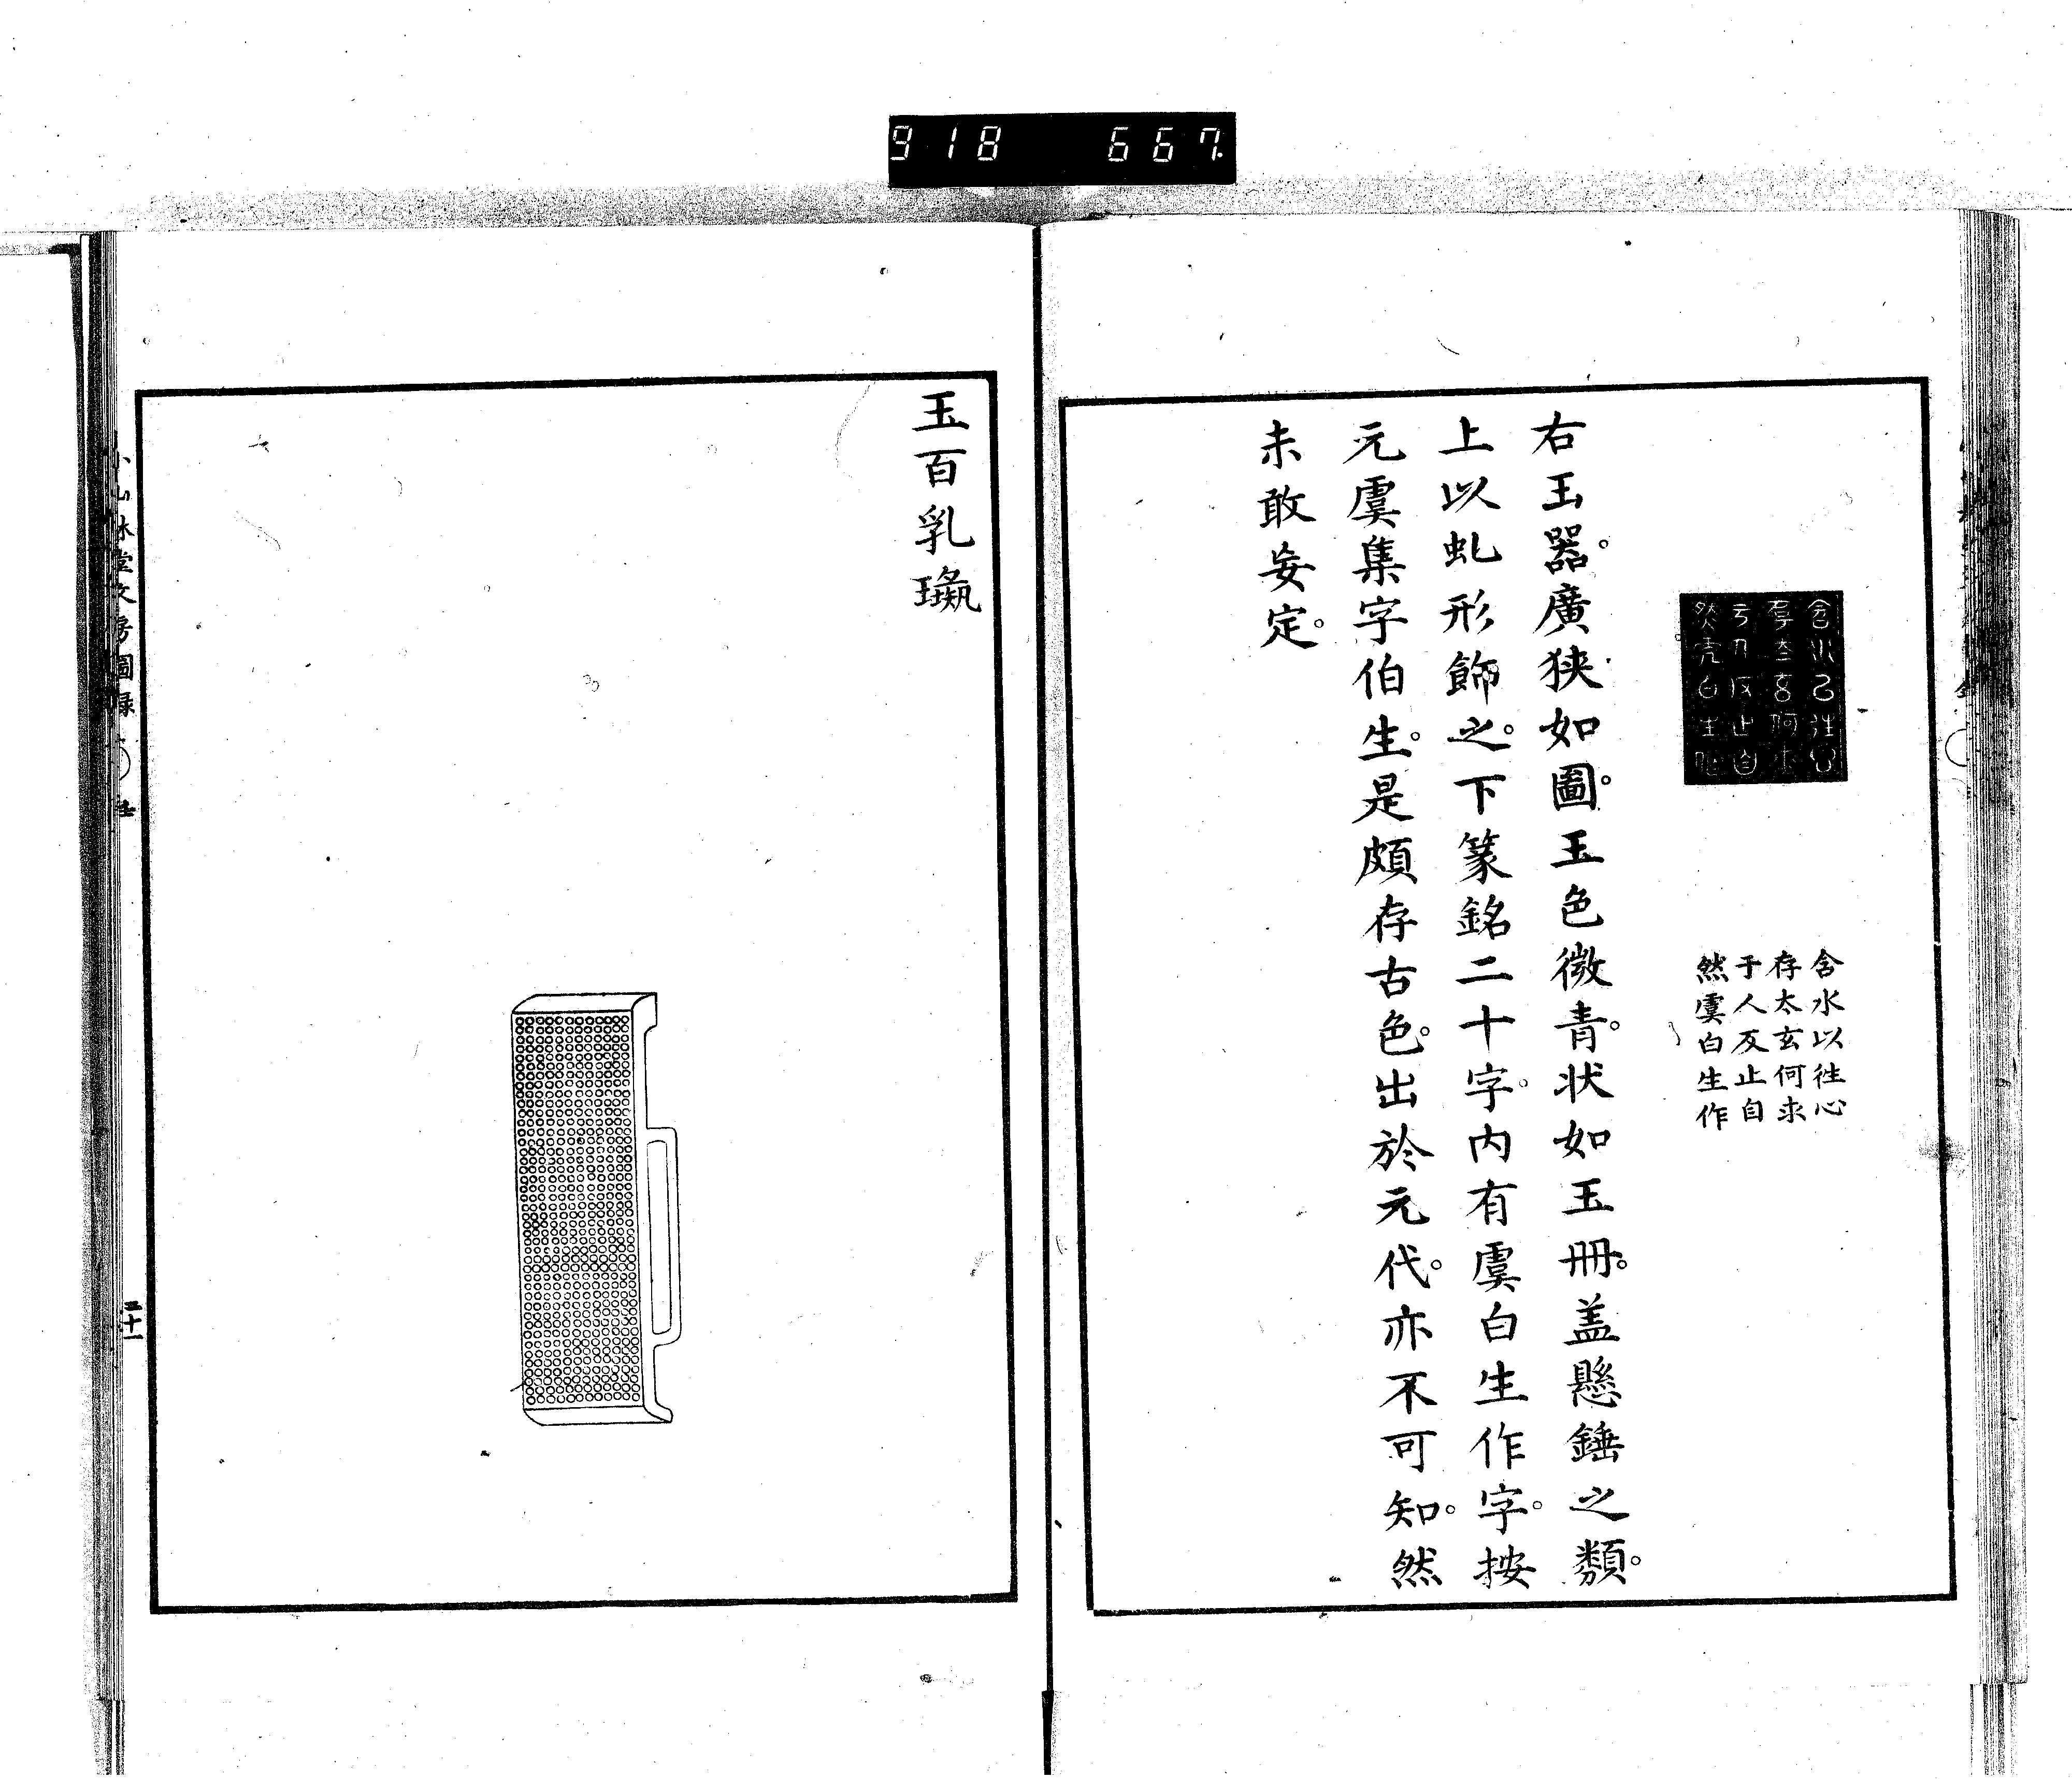 918 667
舍水以徃心
存太玄何求
于人反止自
然虞白生作
右玉器廣狹如圖。玉色微青。状如玉冊。盖懸錘之類。
上以虬形飾之。下篆銘二十字。内有虞白生作字。按
元虞集字伯生。是頗存古色。出於元代。亦不可知。然
未敢妄定。
玉百乳
小山林堂文房圖録
三十一